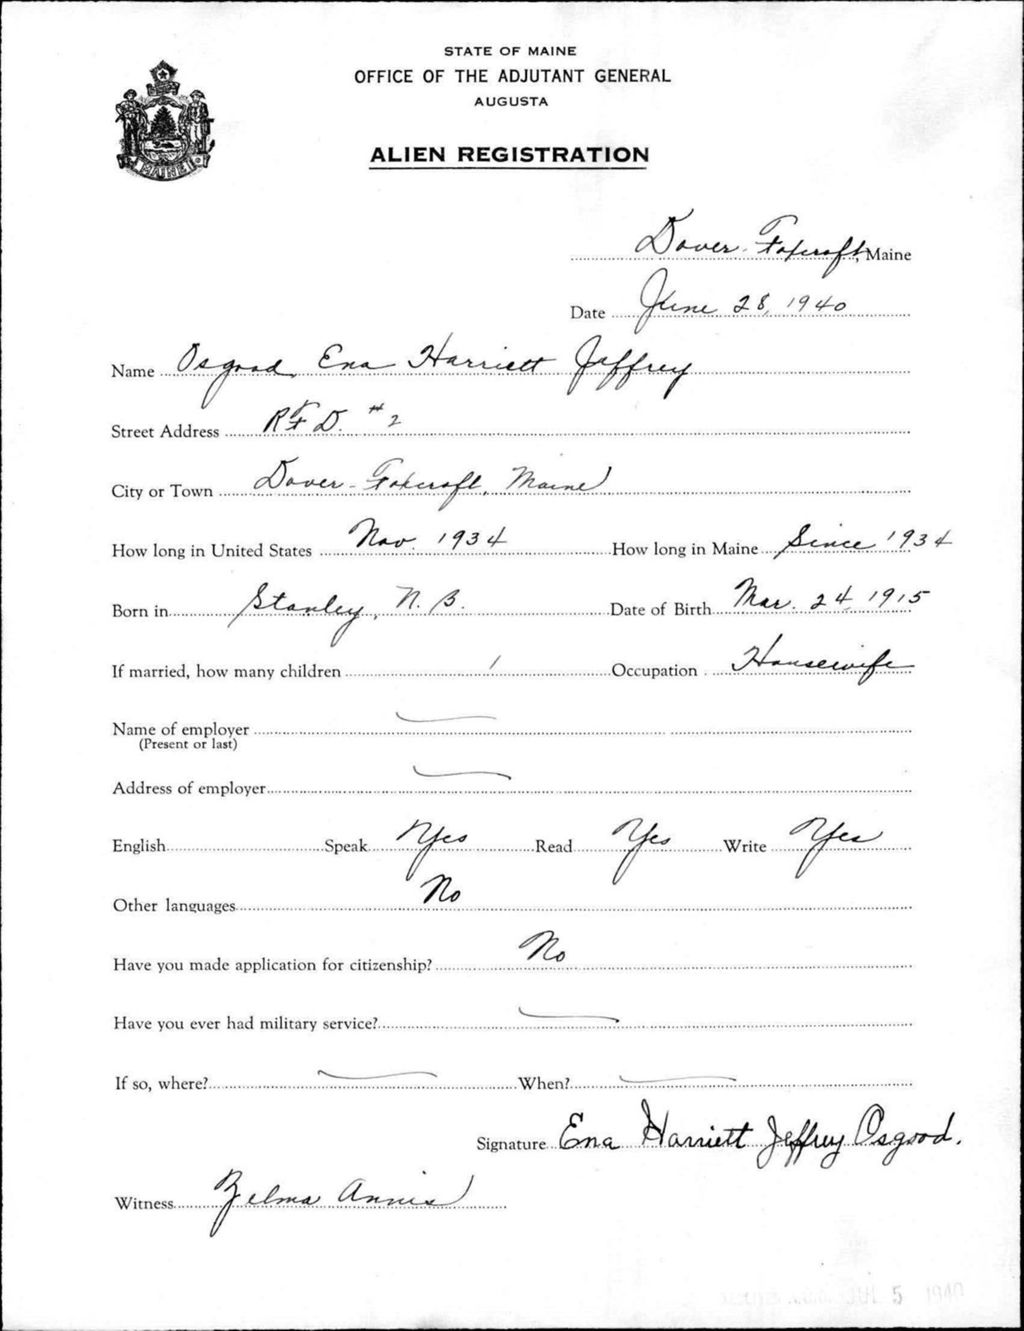 STATE OF MAINE
OFFICE OF THE ADJUTANT GENERAL
AUGUSTA
ALIEN REGISTRATION
MAINE
Dover-Foxcroft, Maine
Date June 28, 1940
Name Osgood, Ena Harriett Jeffrey
Street Address R.F.D. #2
City or Town Dover-Foxcroft, Maine
How long in United States Nov. 1934 How long in Maine Since 1934
Born in Stanley, N.B. Date of Birth Mar. 24, 1915
If married, how many children 1 Occupation Housewife
Name of employer
(Present or last)
Address of employer
English Speak Yes Read Yes Write Yes
Other languages No
Have you made application for citizenship? No
Have you ever had military service?
If so, where? When?
Signature Ena Harriett Jeffrey Osgood.
Witness Zelma Annis
JUL 5 1940